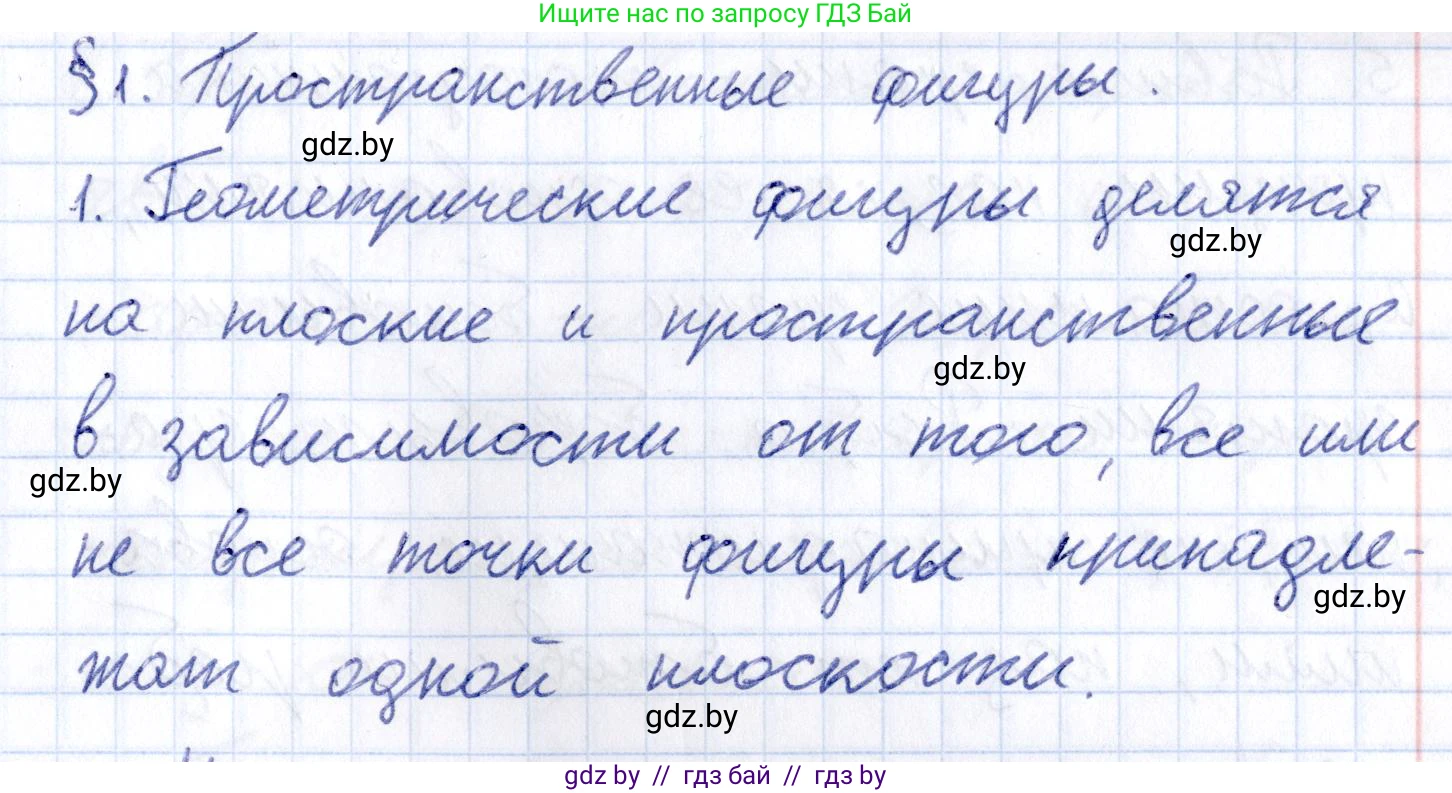 Ищите нас по запросу ГДЗ Бай
§1. Пространственные фигуры.
gdz.by
1. Геометрические фигуры делятся
gdz.by
на плоские и пространственные
gdz.by
в зависимости от того, все или
gdz.by
не все точки фигуры принадле-
gdz.by
жат одной плоскости.
gdz.by
gdz by // гдз бай // гдз by